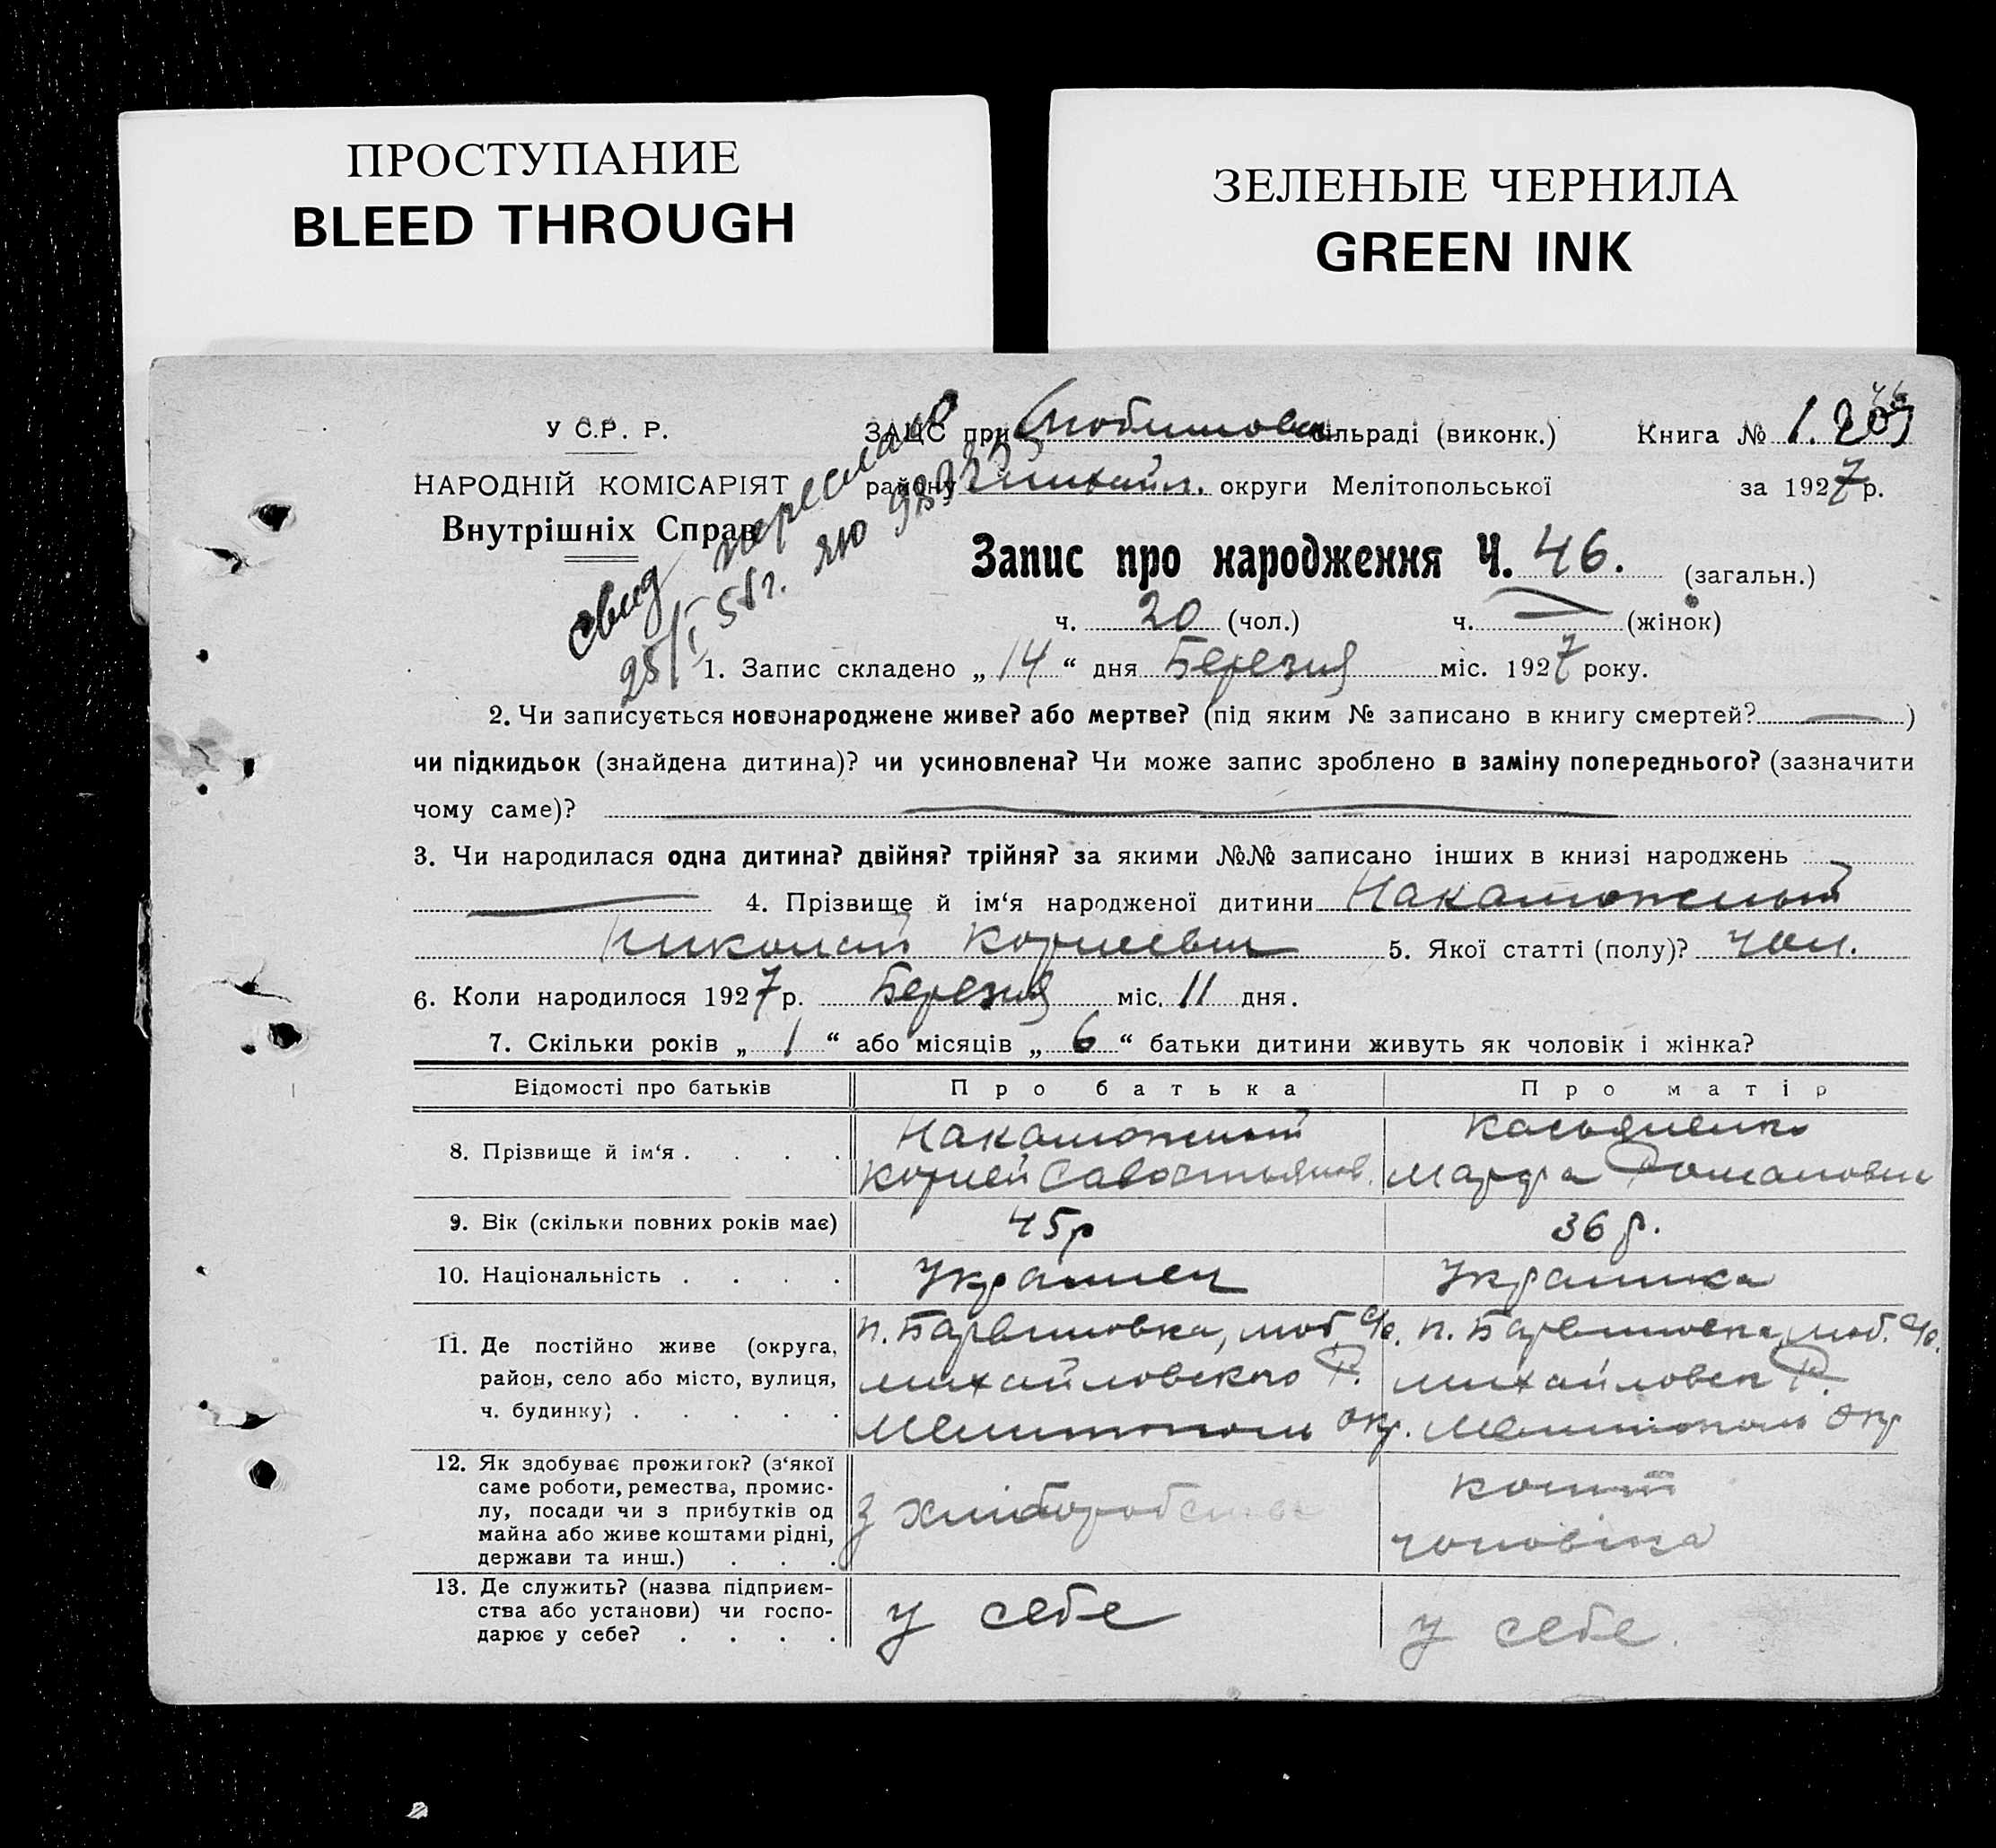 ПРОСТУПАНИЕ
BLEED THROUGH
ЗЕЛЕНЫЕ ЧЕРНИЛА
GREEN INK
У С.Р. Р.
НАРОДНІЙ КОМІСАРІЯТ
Внутрішніх Справ
ЗАЦС при Любимовск. сільраді (виконк.) Книга № 1.
району Михайл. округи Мелітопольської за 1927 р.
свид переслано
25/I 58 г.
Запис про народження Ч. 46. (загальн.)
ч. 20 (чол.) ч. — (жінок)
1. Запис складено „ 14 “ дня Березня міс. 1927 року.
2. Чи записується новонароджене живе? або мертве? (під яким № записано в книгу смертей? — )
чи підкидьок (знайдена дитина)? чи усиновлена? Чи може запис зроблено в заміну попереднього? (зазначити
чому саме)? —
3. Чи народилася одна дитина? двійня? трійня? за якими №№ записано інших в книзі народжень
— 4. Прізвище й ім‘я народженої дитини Накаложный
Николай Корнеевич 5. Якої статті (полу)? Чол.
6. Коли народилося 1927 р. Березня міс. 11 дня.
7. Скільки років „ 1 “ або місяців „ 6 “ батьки дитини живуть як чоловік і жінка?
Відомості про батьків Про батька Про матір
8. Прізвище й ім‘я . . . . Накаложный Касьяненко
Корней Савостьянов. Марфа Романовна
9. Вік (скільки повних років має) 45 р 36 р.
10. Національність . . . . Украинец Украинка
11. Де постійно живе (округа, п. Барвиновка, Люб. с/с. п. Барвиновка, Люб. с/с.
район, село або місто, вулиця, Михайловского Р. Михайловск Р.
ч. будинку) . . . . . Мелитополь окр. Мелитополь окр
12. Як здобуває прожиток? (з‘якої
саме роботи, ремества, промис-
лу, посади чи з прибутків од
майна або живе коштами рідні,
держави та инш.) . . .
З хліборобства кошт
чоловіка
13. Де служить? (назва підприєм-
ства або установи) чи госпо-
дарює у себе? . . . .
у себе у себе.